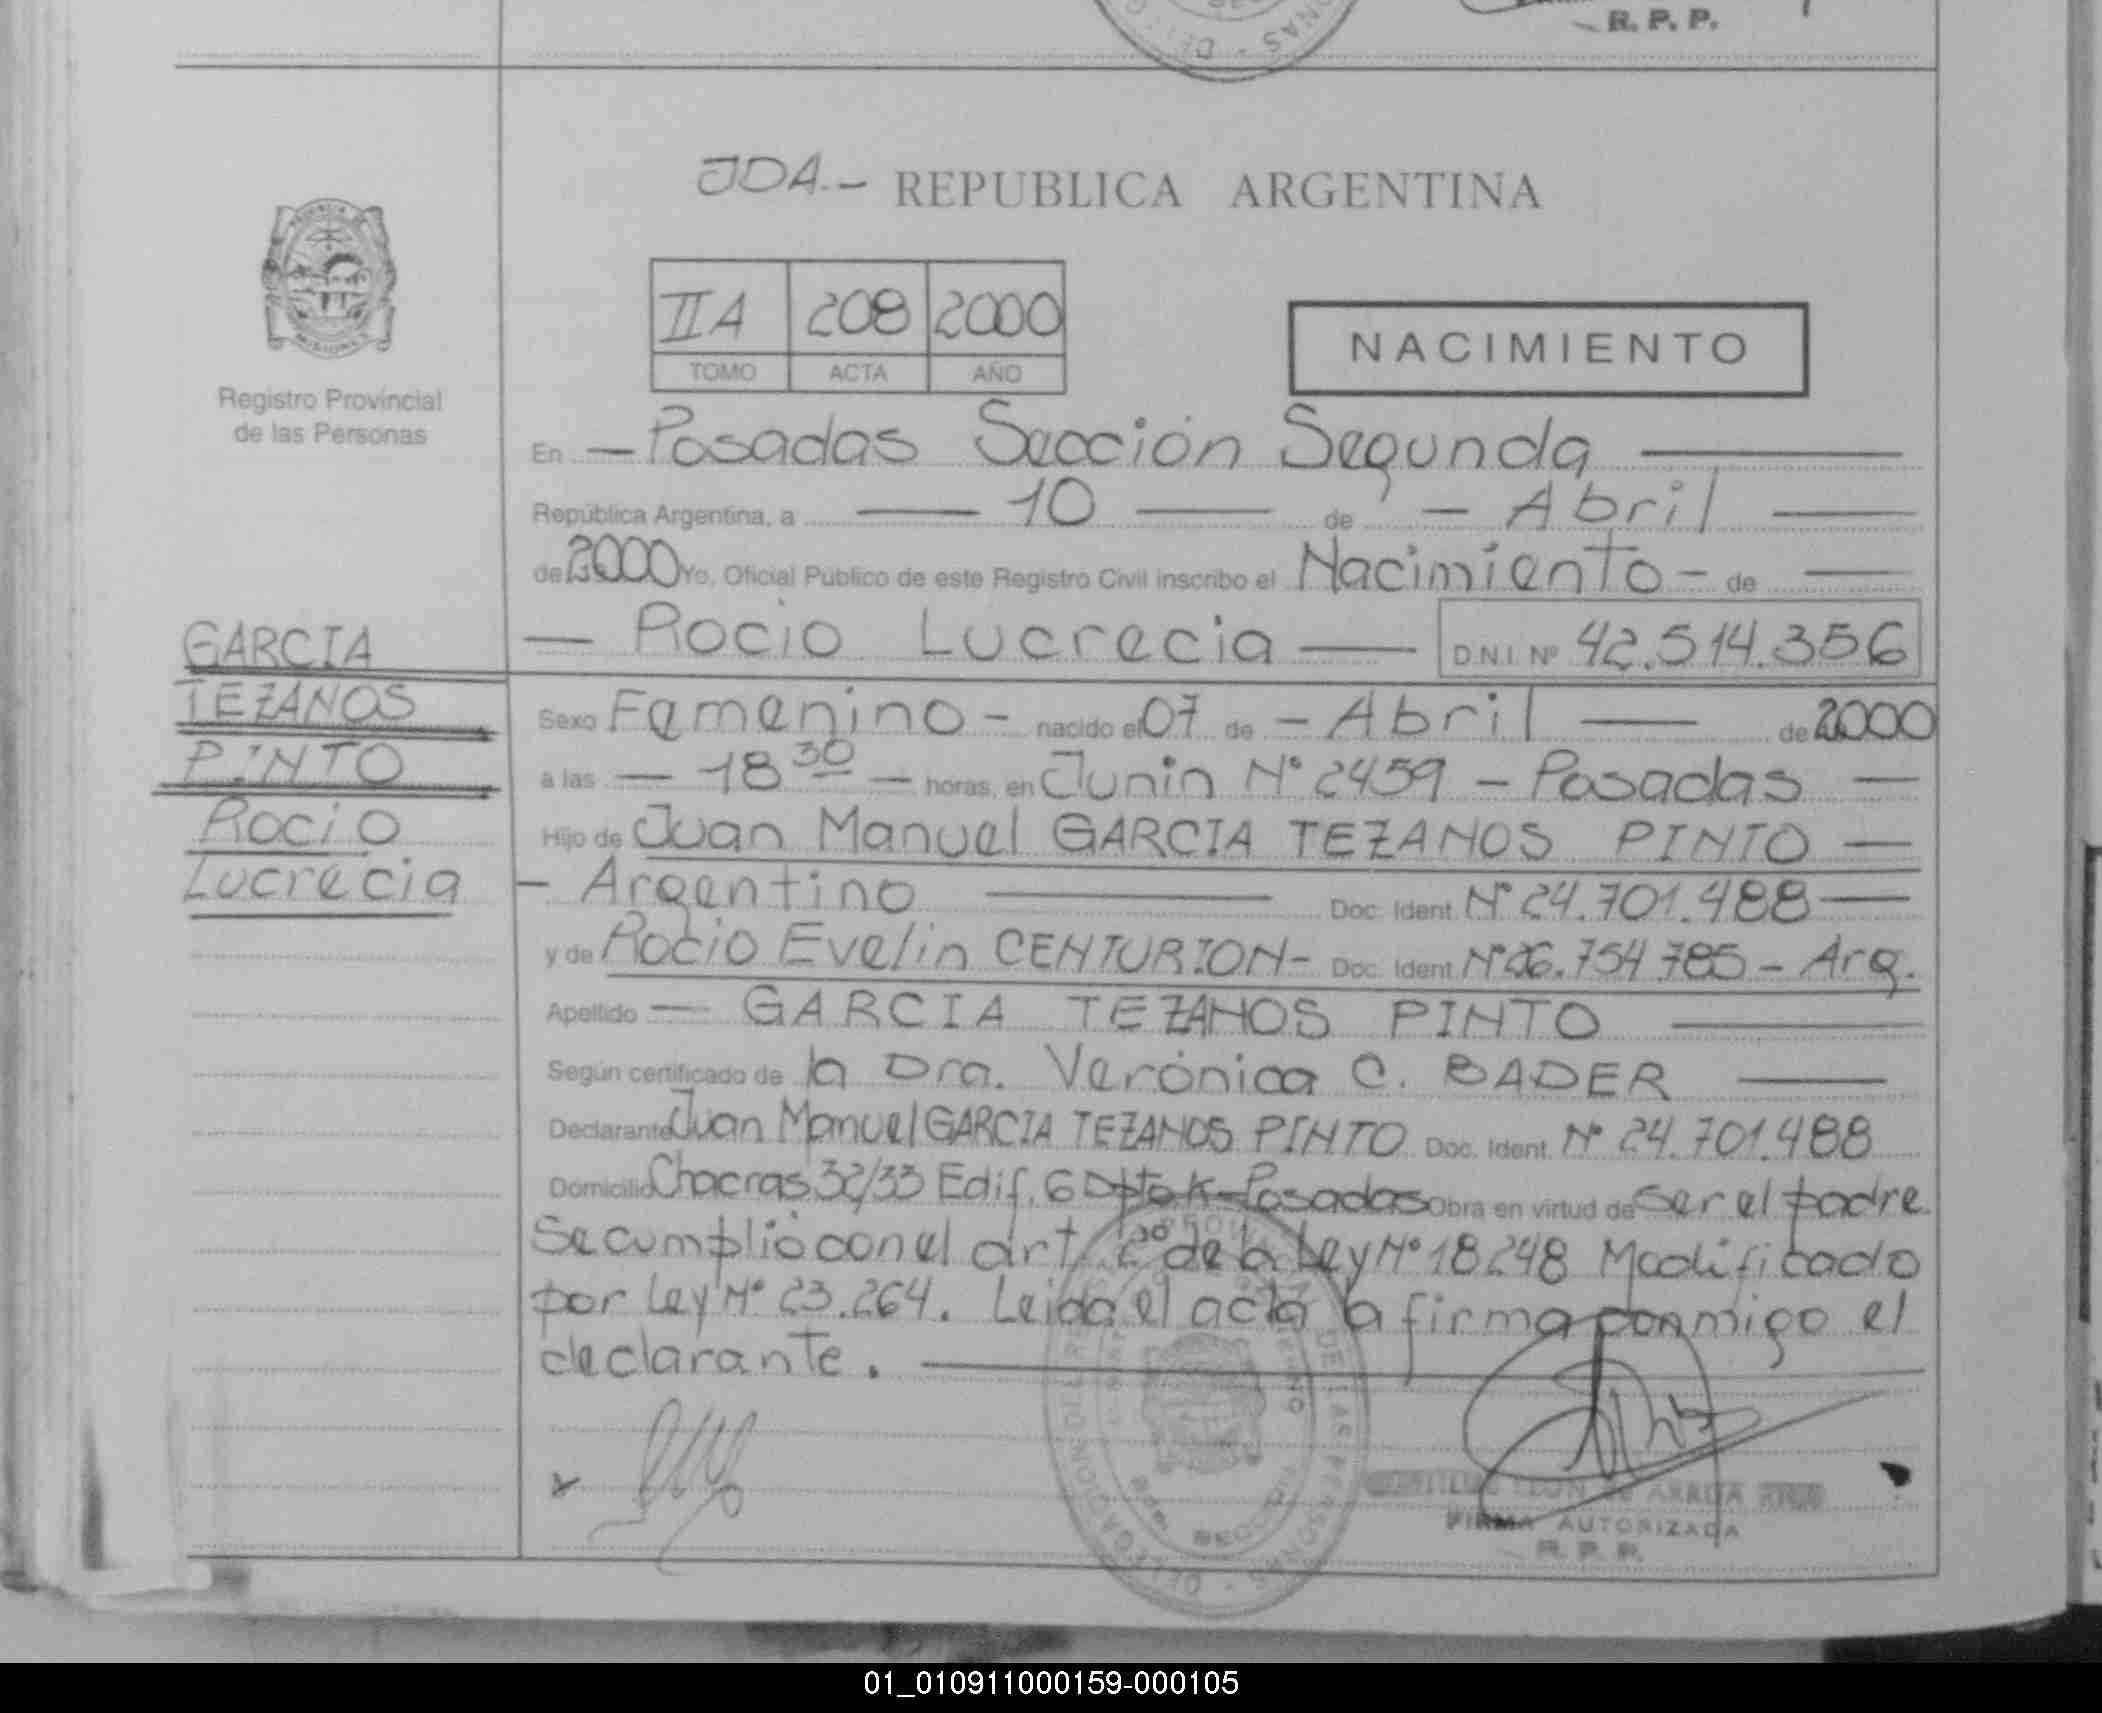 R. P. P.
JDA.- REPUBLICA ARGENTINA
IIA 208 2000
TOMO ACTA AÑO
NACIMIENTO
MISIONES
Registro Provincial
de las Personas
En — Posadas Sección Segunda —
República Argentina, a — 10 — de — Abril —
de 2000 Yo, Oficial Público de este Registro Civil inscribo el Nacimiento - de —
— Rocio Lucrecia — D.N.I. Nº 42.514.356
GARCIA
TEZANOS
PINTO
Rocio
Lucrecia
Sexo Femenino - nacido el 07 de - Abril — de 2000
a las — 18 30 — horas, en Junin Nº 2459 - Posadas —
Hijo de Juan Manuel GARCIA TEZANOS PINTO —
- Argentino — Doc. Ident. Nº 24.701.488 —
y de Rocio Evelin CENTURION - Doc. Ident. Nº 26.754.785 - Arg.
Apellido — GARCIA TEZANOS PINTO —
Según certificado de la Dra. Verónica C. BADER —
Declarante Juan Manuel GARCIA TEZANOS PINTO Doc. Ident. Nº 24.701.488
Domicilio Chacras 32/33 Edif. 6 Dpto K - Posadas Obra en virtud de ser el padre
Se cumplió con el art. 2º de la Ley Nº 18248 Modificado
por Ley Nº 23.264. Leida el acta la firma conmigo el
declarante. —
FIRMA AUTORIZADA
R. P. P.
01_010911000159-000105